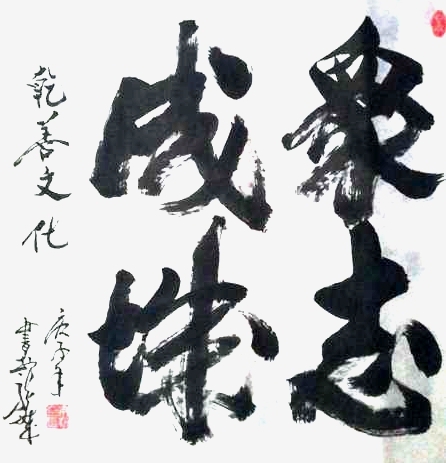 衆志
成城
乾善文化
庚子年